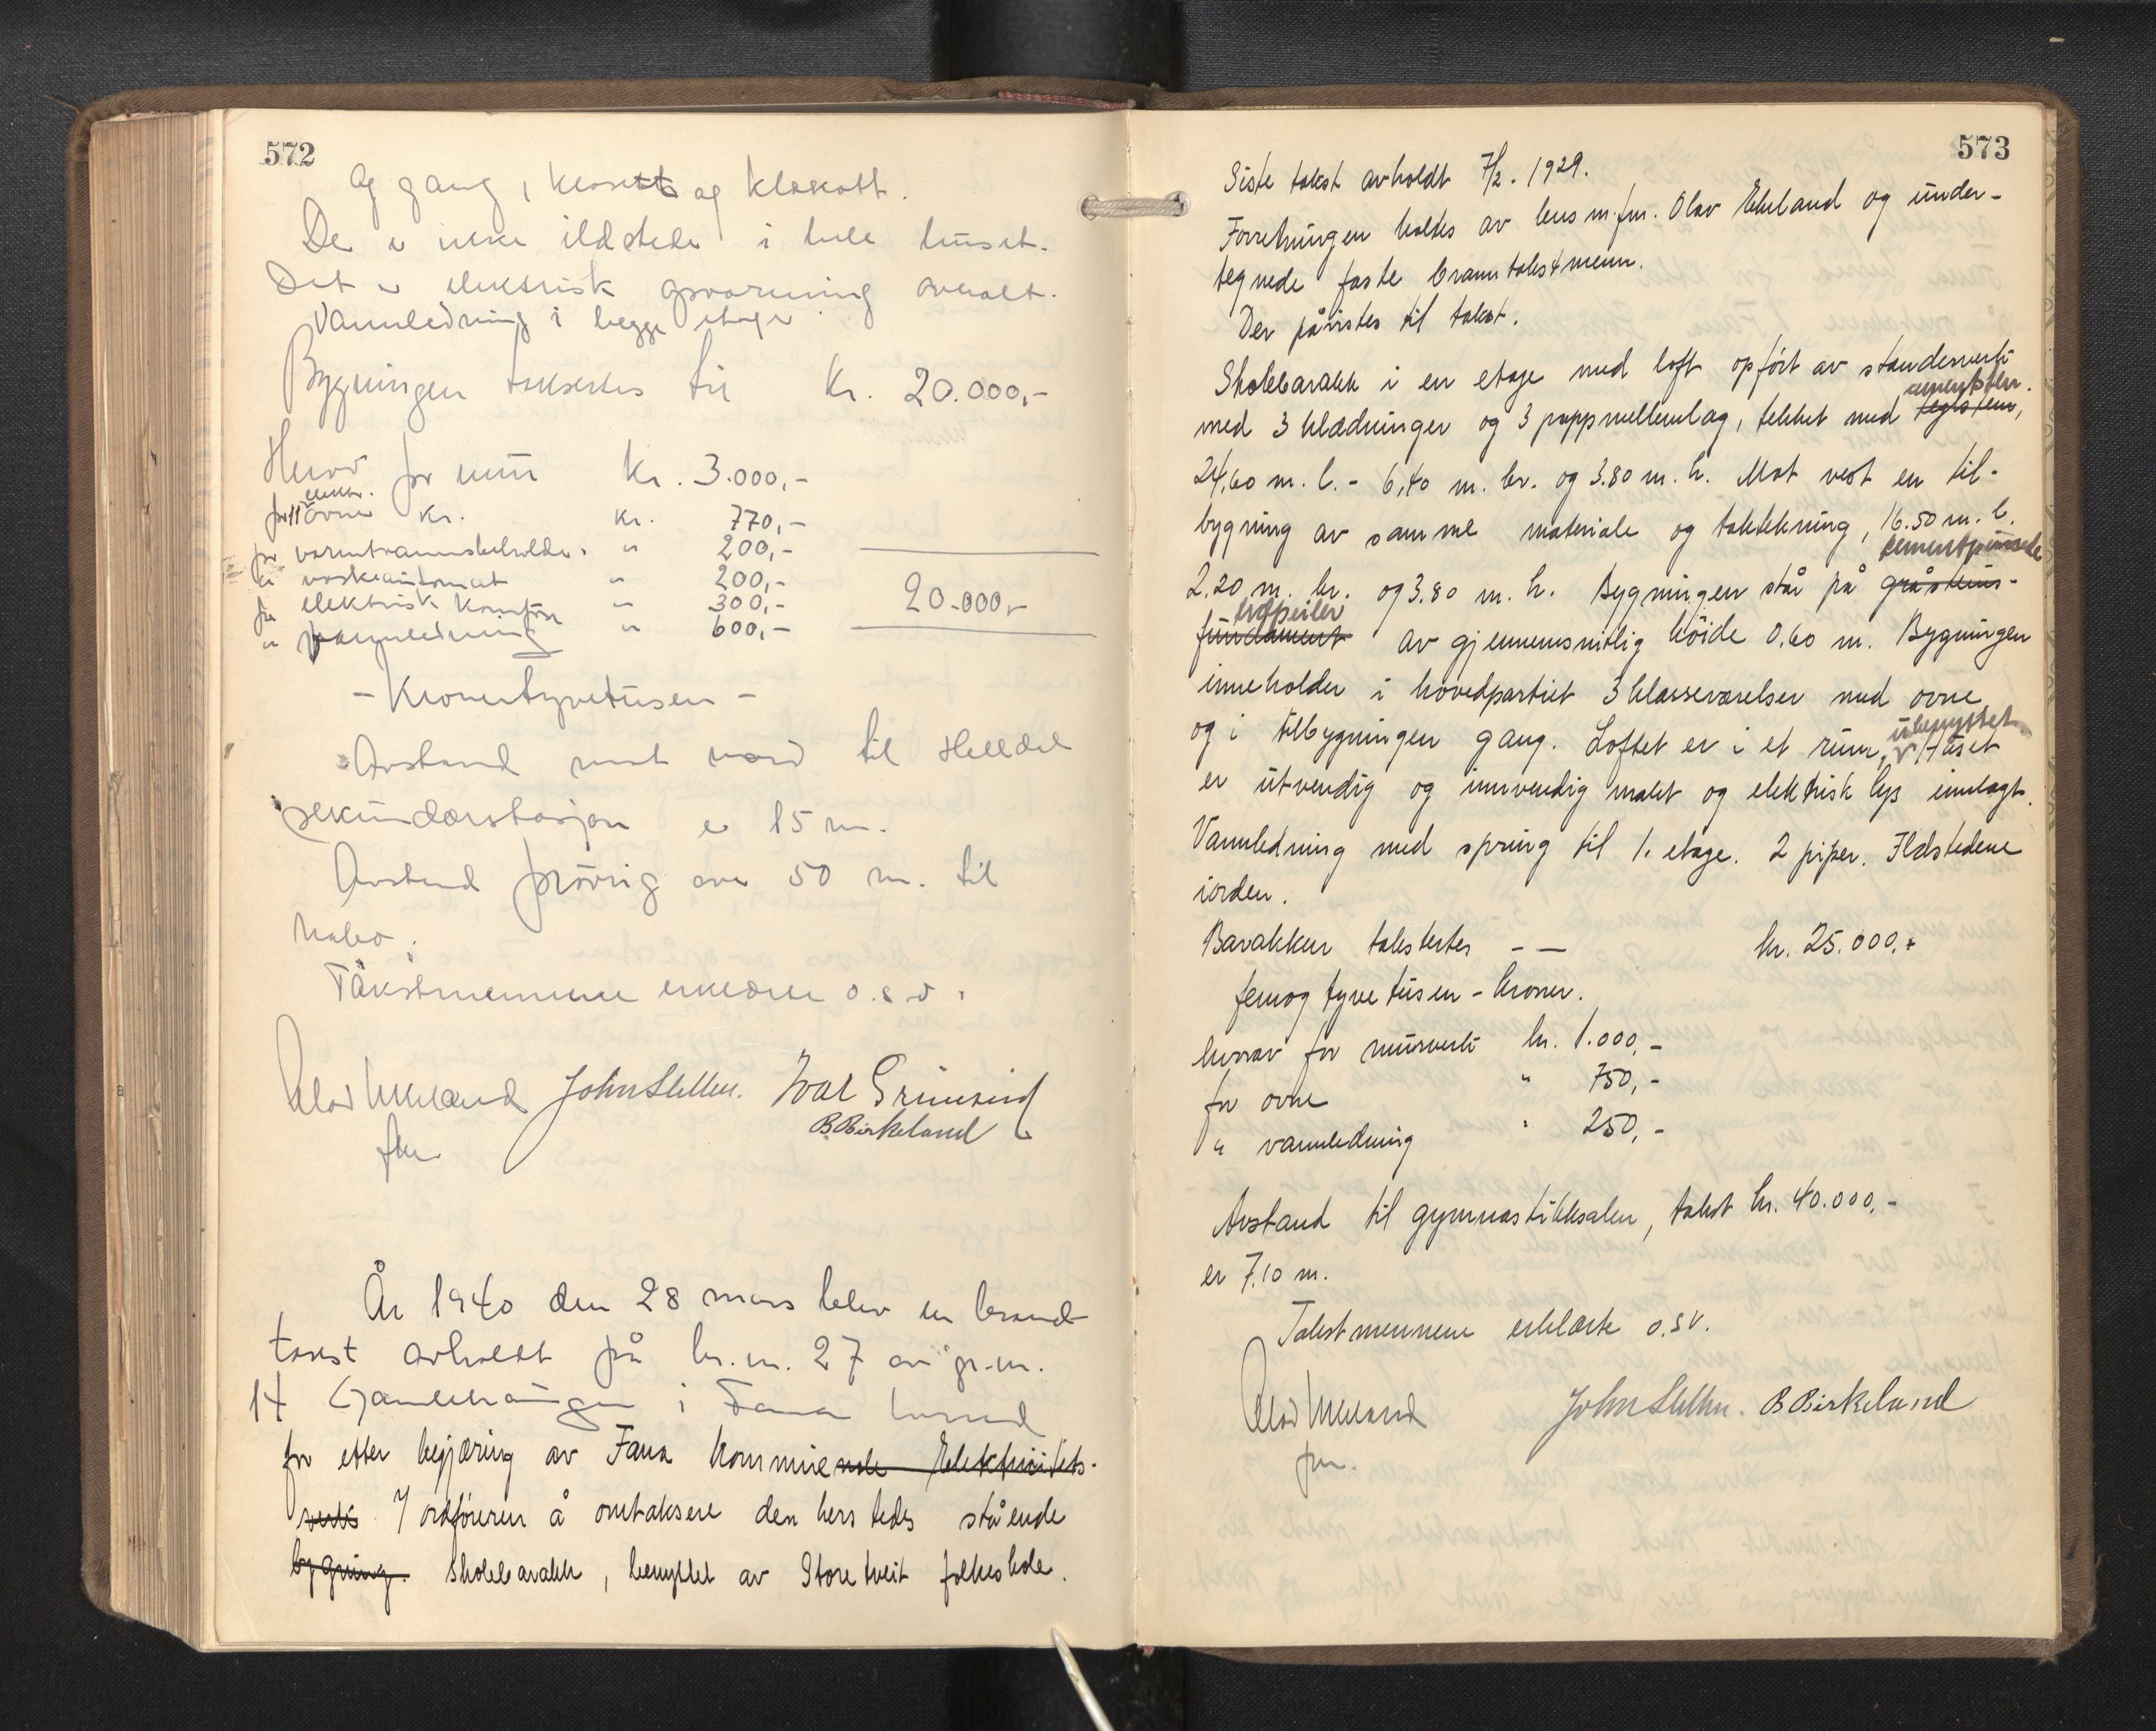 572
og gang, klosett og kleskott.
De er ikke ildsteder i hele huset.
Det er elektrisk opvarming overalt.
Vannledning i begge etager.
Bygningen takseres til kr. 20.000,-
Herav for mur kr. 3.000,-
for 11 elektr. ovner kr. kr. 770,-
for varmtvannsbeholder " 200,-
" vaskeautomat " 200,-
for elektrisk komfyr " 300,- 20.000,-
" vannledning " 600,-
- Kronertyvetusen -
Avstand mot nord til Helldal
sekundærstasjon er 15 m.
Avstand forøvrig over 50 m. til
nabo.
Takstmennene erklærer o.s.v.
Olav Ekeland John Slettten. Ivar Grimseid
fm B Birkeland
År 1940 den 28 mars blev en brand
takst avholdt på br.nr. 27 av gr.nr.
14 i Fana herred
for efter begjæring av Fana kommunenale Elektrisitets-
verks v/ ordføreren å omtaksere den hersteds stående
bygning. skolebarakk, benyttet av Storetveit folkeskole.
573
Siste takst avholdt 7/2. 1929.
Forretningen holtes av lensm.fm. Olav Ekeland og under-
tegnede faste branntakstmenn.
Der påvistes til takst.
Skolebarakk i en etage med loft opført av stenderverk
cementsten.
med 3 klædninger og 3 pappmellemlag, tekket med teglsten,
24,60 m. l. - 6,40 m. br. og 3.80 m. h. Mot vest en til-
bygning av samme materiale og taktekning, 16.50 m. l.
cementpussede
2.20 m. br. og 3.80 m. h. Bygningen står på gråstens-
fundament av gjennemsnitlig høide 0.60 m. Bygningen
inneholder i hovedpartiet 3 klasseværelser med ovne
og i tilbygningen gang. Loftet er i et rum, ubenyttet. Huset
er utvendig og innvendig malet og elektrisk lys innlagt.
Vannledning med spring til 1. etage. 2 piper. Ildstedene
iorden.
Barakken taksertes - — kr. 25.000,-
femogtyvetusen - kroner.
hvorav for murverk kr. 1.000,-
for ovne " 750,-
" vannledning " 250,-
Avstand til gymnastikksalen, takst kr. 40.000,-
er 7.10 m.
Takstmennene erklærte o.s.v.
Olav Ekeland John Slettten. B Birkeland
fm.